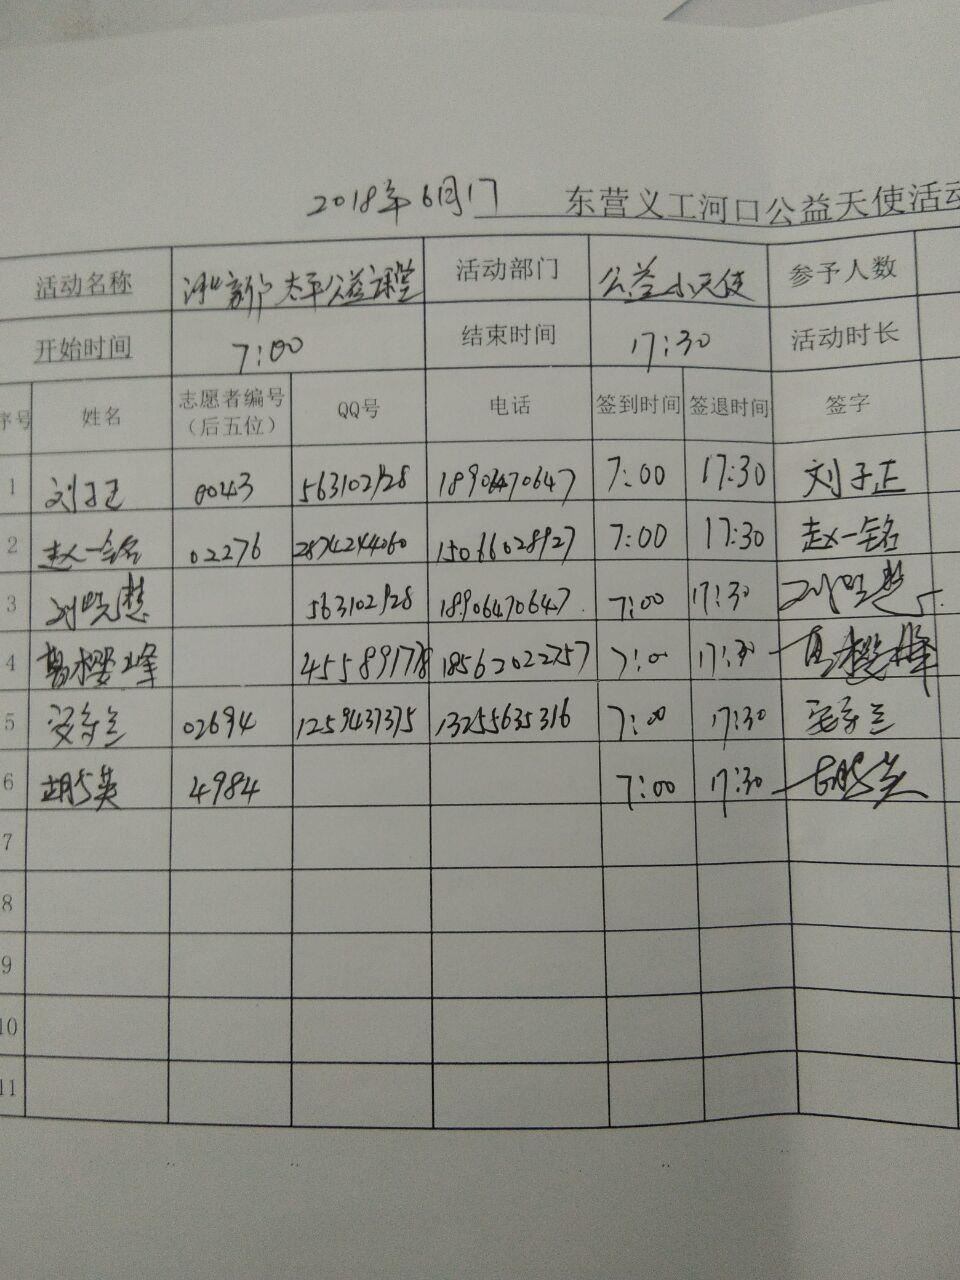 2018年6月17 东营义工河口公益天使活动
活动名称 太平公益课堂 活动部门 公益小天使 参予人数
开始时间 7:00 结束时间 17:30 活动时长
序号 姓名 志愿者编号（后五位） QQ号 电话 签到时间 签退时间 签字
1 刘子正 0043 563102128 18906470647 7:00 17:30 刘子正
2 赵一铭 02276 2874244060 15066028927 7:00 17:30 赵一铭
3 563102128 18906470647 7:00 17:30
4 455891778 18562022757 7:00 17:30
5 02694 1259437375 13255635316 7:00 17:30
6 4984 7:00 17:30
7
8
9
10
11